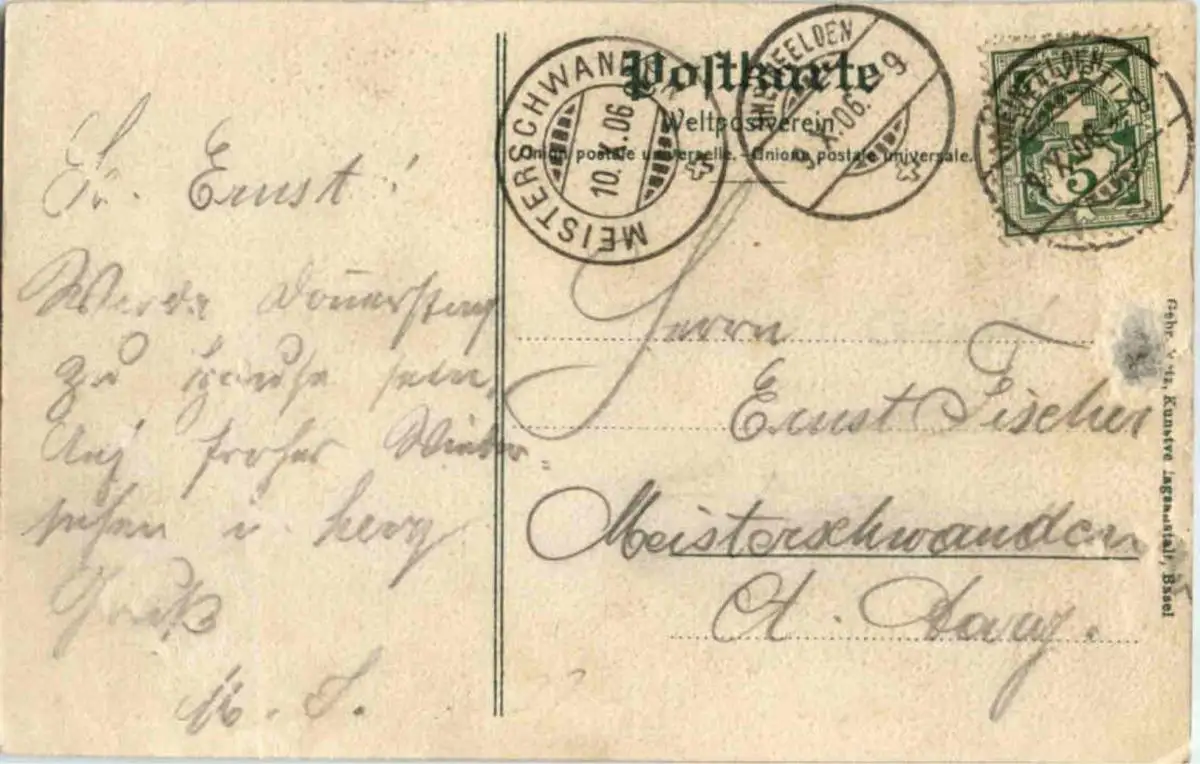 Postkarte
Weltpostverein
Union postale universelle. - Unione postale universale.
MEISTERSCHWANDEN
10.X.06
9.X.06. 9
HELVETIA
5
Ernst!
Werde Donnerstag
zu Hause sein,
Auf frohes Wieder-
sehen u. herzg
Gruß
M. S.
Herrn
Ernst Fischer
Meisterschwanden
Ct. Aarg.
Kunstverlagsanstalt, Basel